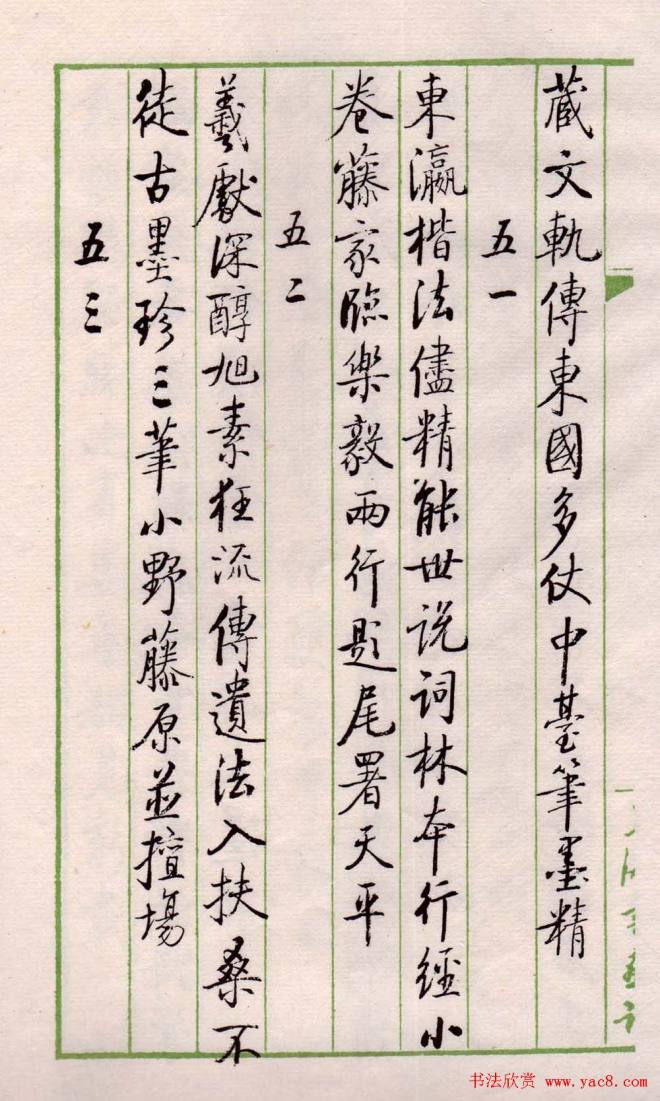 蔵文軌傳東國多仗中臺筆墨精
五一
東瀛楷法儘精能世說詞林本行經小
卷藤家臨樂毅兩行題尾署天平
五二
羲獻深醇旭素狂流傳遺法入扶桑不
徒古墨珍三筆小野藤原並擅場
五三
书法欣赏 www.yac8.com